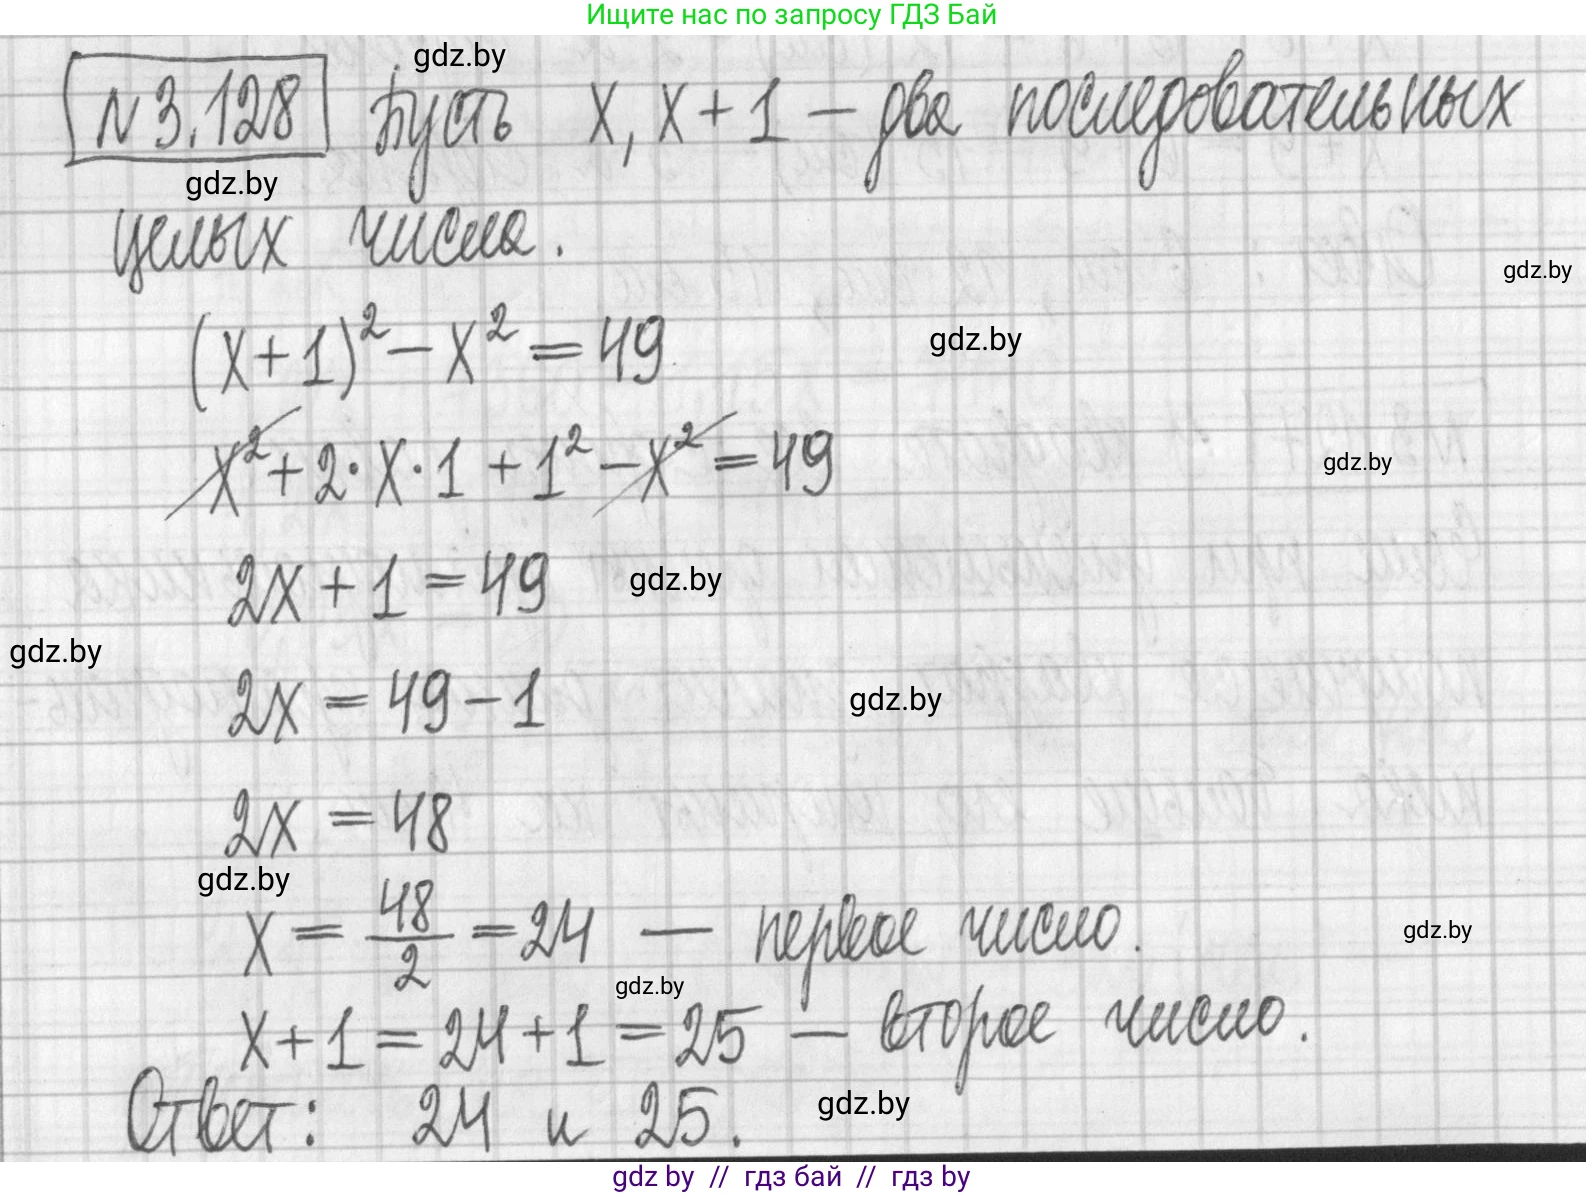 Ищите нас по запросу ГДЗ Бай
gdz.by
N 3.128 Пусть x, x + 1 — два последовательных
gdz.by
целых числа.
gdz.by
(x+1)² − x² = 49
gdz.by
x² + 2·x·1 + 1² − x² = 49
gdz.by
2x + 1 = 49
gdz.by
gdz.by
2x = 49 − 1
gdz.by
2x = 48
gdz.by
x = 48/2 = 24 — первое число.
gdz.by
gdz.by
x + 1 = 24 + 1 = 25 — второе число.
Ответ: 24 и 25.
gdz.by
gdz by // гдз бай // гдз by